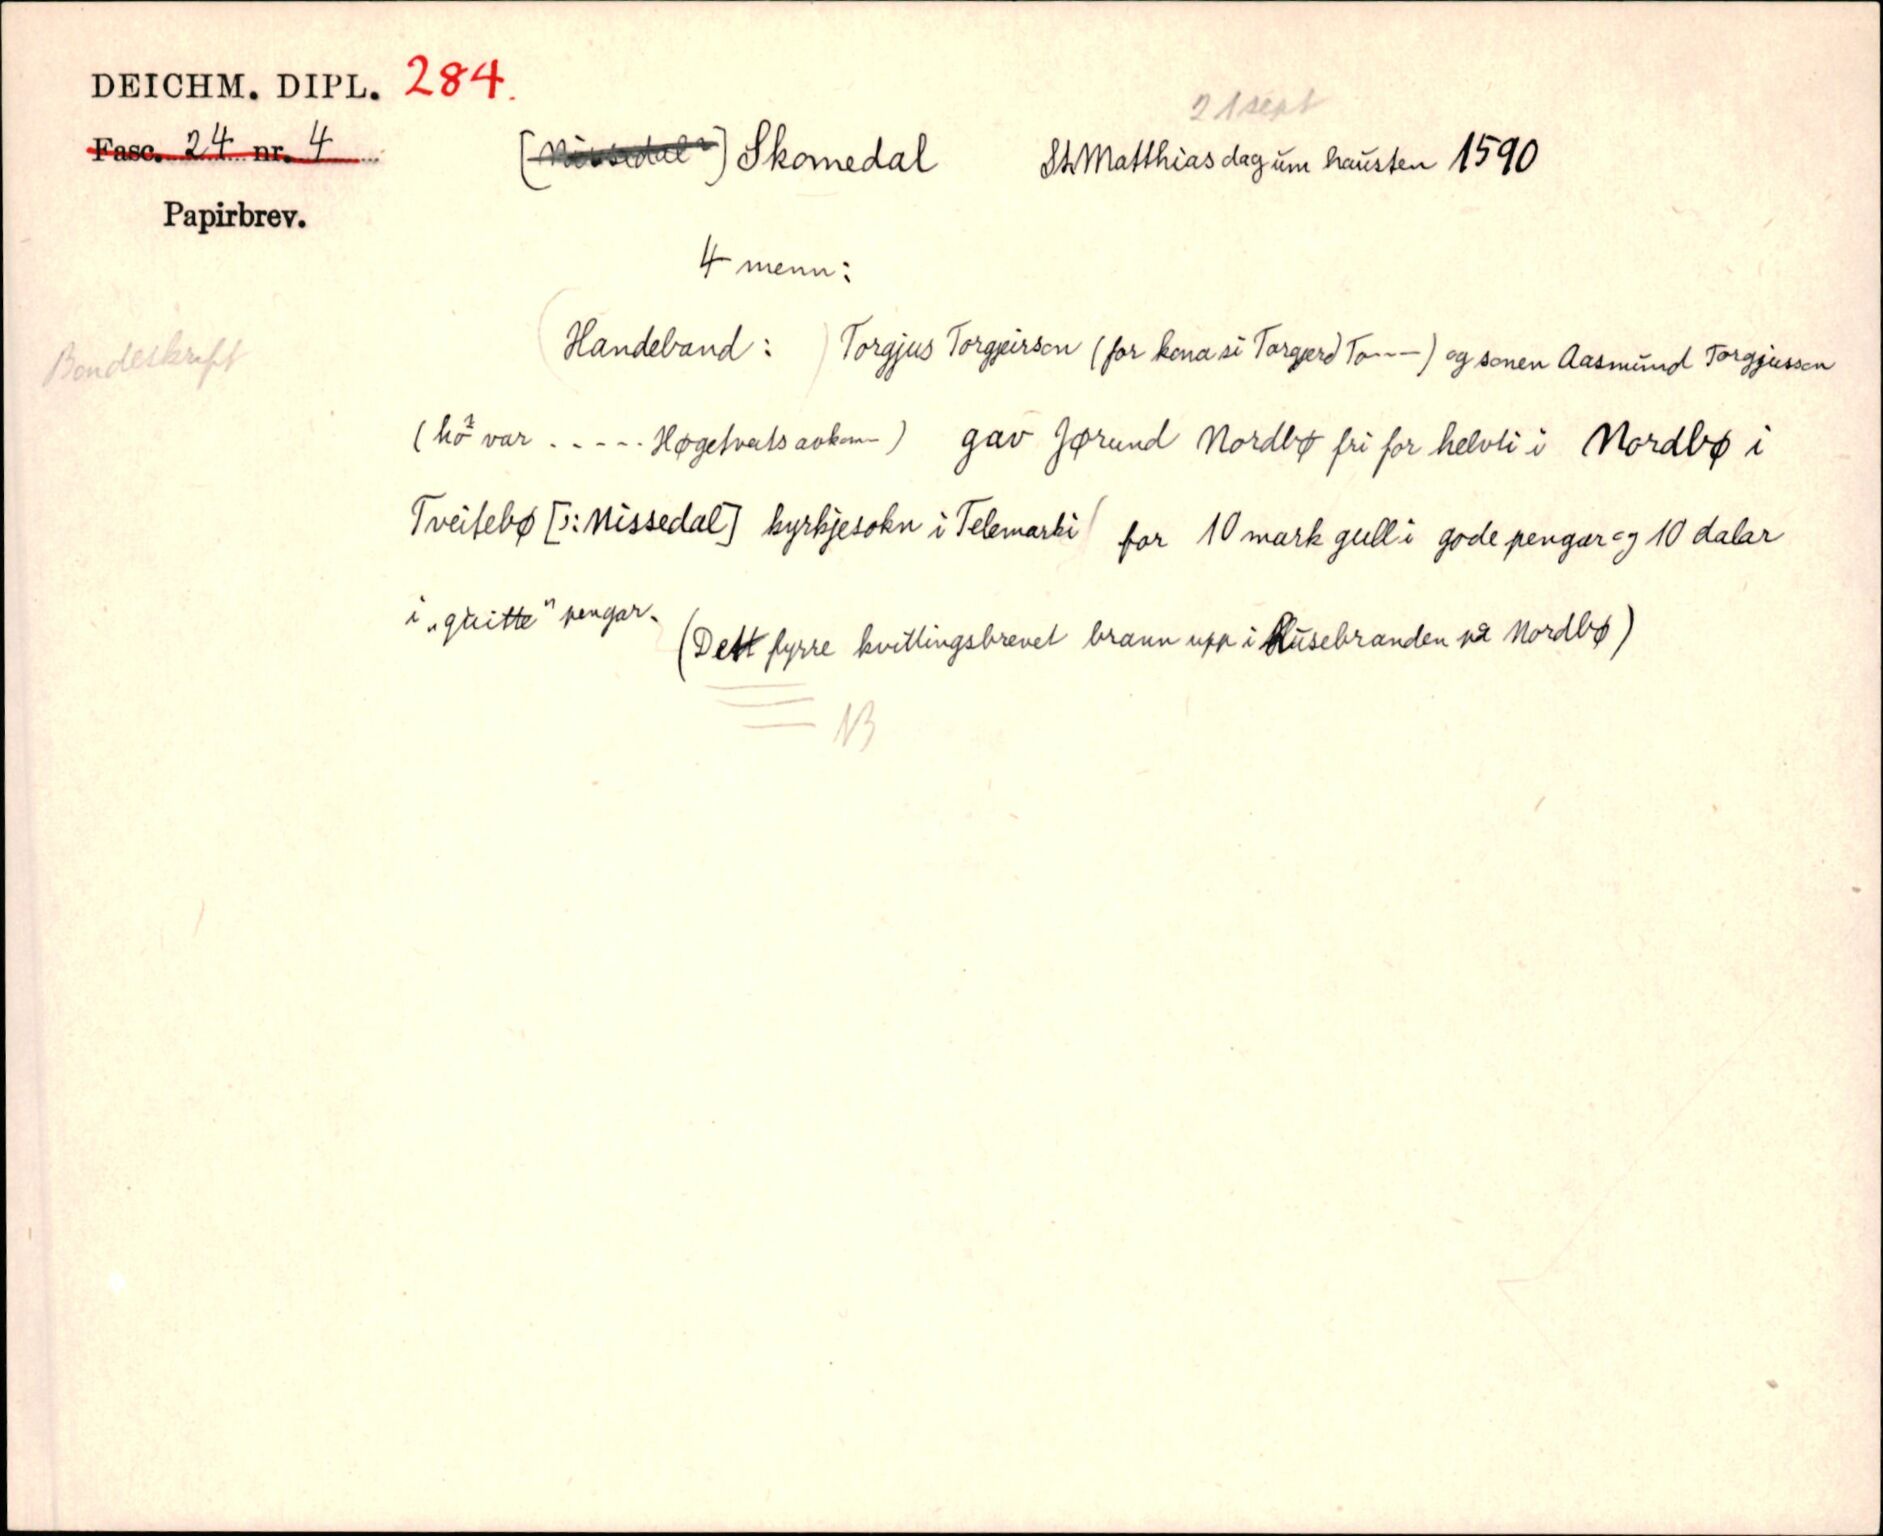 DEICHM. DIPL. 284.
21 sept
Fasc. 24 nr. 4 [Nissedal?] Skomedal St. Matthias dag um hausten 1590
Papirbrev.
4 menn:
Bondeskrift
(Handeband:) Torgjus Torgjeirson (for kona si Torgjerd To---) og sonen Aasmund Torgjusson
(ho? var ..... Høgetveits avkom) gav Jørund Nordbø fri for helvti i Nordbø i
Tveitebø [ɔ: Nissedal] kyrkjesokn i Telemarki for 10 mark gull i gode pengar og 10 dalar
i „quitte" pengar.
(Dett fyrre kvittingsbrevet brann upp i Husebranden på Nordbø)
NB